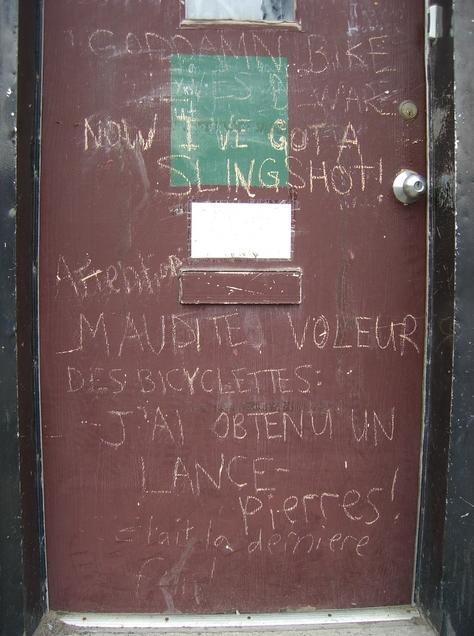 GODDAMN BIKE
NOW I'VE GOT A
SLINGSHOT!
Attention
MAUDITE VOLEUR
DES BICYCLETTES:
J'AI OBTENU UN
LANCE-
pierres!
C'tait la derniere
fois!